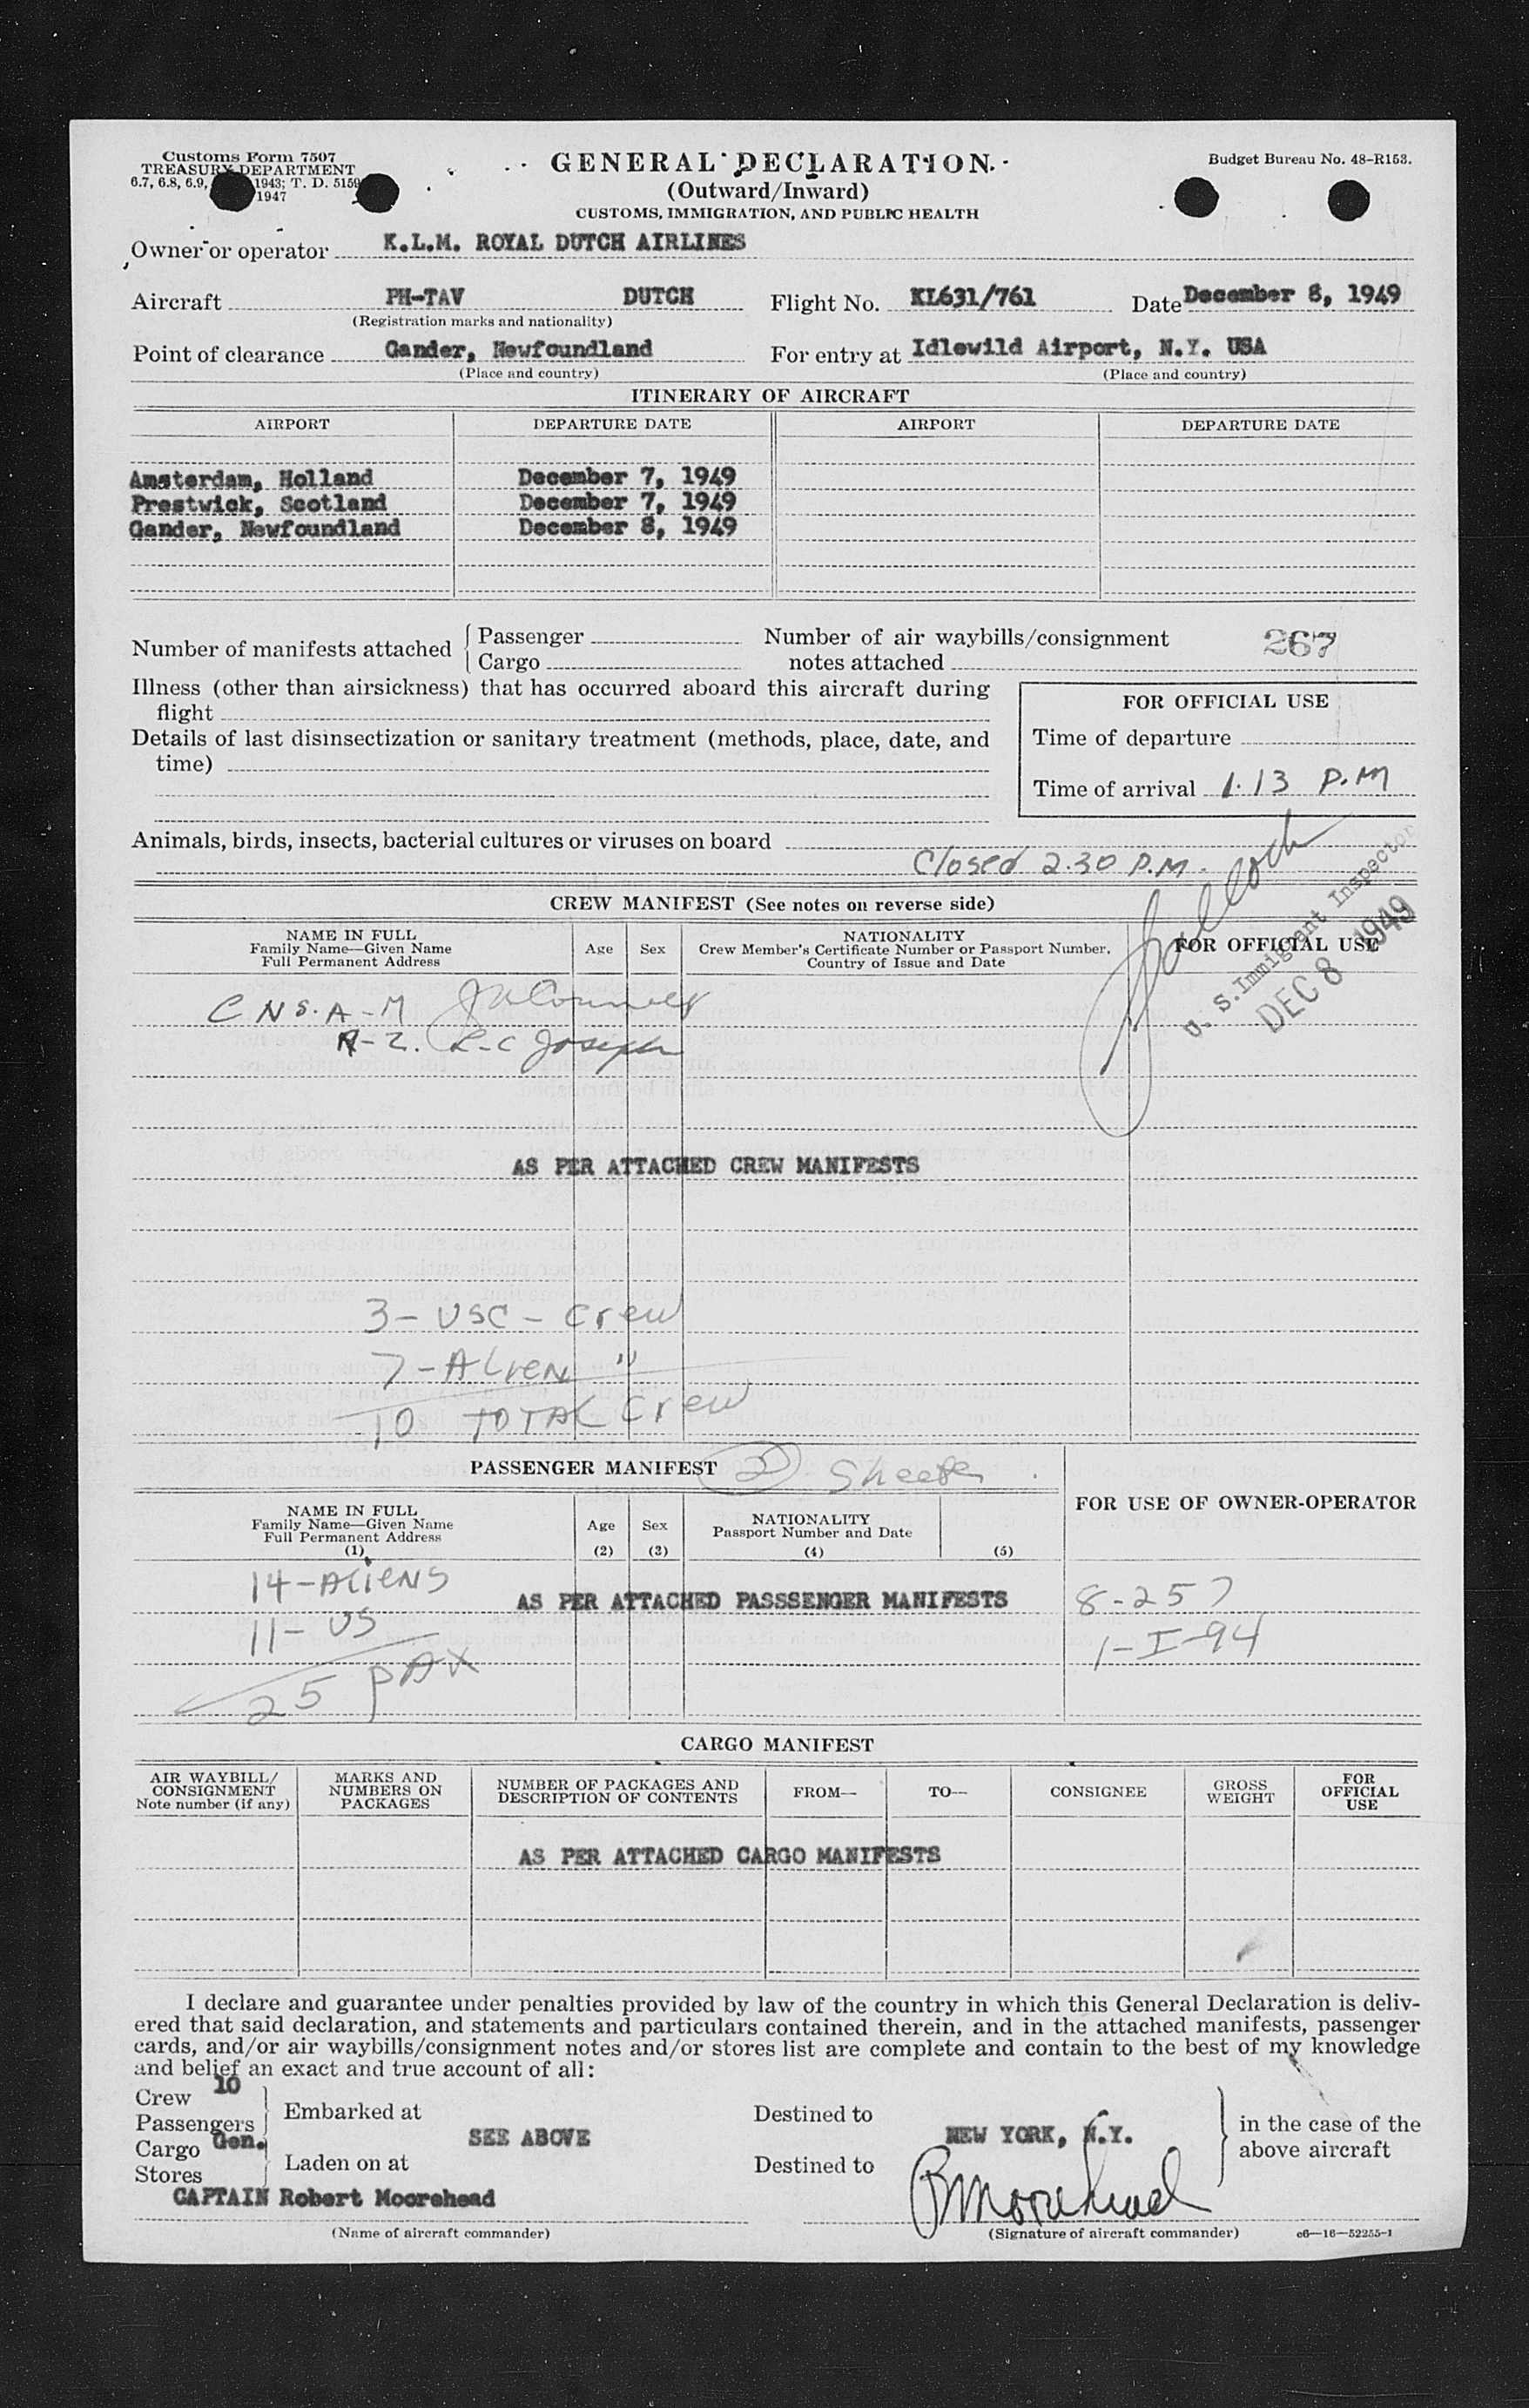 Customs Form 7507
TREASURY DEPARTMENT
6.7, 6.8, 6.9, 1943; T. D. 5159
1947
GENERAL DECLARATION
(Outward/Inward)
CUSTOMS, IMMIGRATION, AND PUBLIC HEALTH
Budget Bureau No. 48-R153.
Owner or operator K.L.M. ROYAL DUTCH AIRLINES
Aircraft PH-TAV DUTCH Flight No. KL631/761 Date December 8, 1949
(Registration marks and nationality)
Point of clearance Gander, Newfoundland For entry at Idlewild Airport, N.Y. USA
(Place and country) (Place and country)
ITINERARY OF AIRCRAFT
AIRPORT DEPARTURE DATE AIRPORT DEPARTURE DATE
Amsterdam, Holland December 7, 1949
Prestwick, Scotland December 7, 1949
Gander, Newfoundland December 8, 1949
Number of manifests attached { Passenger
Cargo
Number of air waybills/consignment
notes attached 267
Illness (other than airsickness) that has occurred aboard this aircraft during
flight
Details of last disinsectization or sanitary treatment (methods, place, date, and
time)
FOR OFFICIAL USE
Time of departure
Time of arrival 1.13 P.M
Animals, birds, insects, bacterial cultures or viruses on board
Closed 2.30 P.M.
CREW MANIFEST (See notes on reverse side)
NAME IN FULL
Family Name—Given Name
Full Permanent Address
Age Sex
NATIONALITY
Crew Member's Certificate Number or Passport Number,
Country of Issue and Date
FOR OFFICIAL USE
U. S. Immigrant Inspector
DEC 8 1949
CNS. A-M
R-Z. R-C Joseph
AS PER ATTACHED CREW MANIFESTS
3- USC - Crew
7-Alien "
10 TOTAL Crew
PASSENGER MANIFEST 2 Sheets
FOR USE OF OWNER-OPERATOR
NAME IN FULL
Family Name—Given Name
Full Permanent Address
(1)
Age
(2)
Sex
(3)
NATIONALITY
Passport Number and Date
(4) (5)
14-Aliens
AS PER ATTACHED PASSSENGER MANIFESTS 8-257
11- US 1-I-94
25 PAX
CARGO MANIFEST
AIR WAYBILL/
CONSIGNMENT
Note number (if any)
MARKS AND
NUMBERS ON
PACKAGES
NUMBER OF PACKAGES AND
DESCRIPTION OF CONTENTS
FROM— TO— CONSIGNEE
GROSS
WEIGHT
FOR
OFFICIAL
USE
AS PER ATTACHED CARGO MANIFESTS
I declare and guarantee under penalties provided by law of the country in which this General Declaration is deliv-
ered that said declaration, and statements and particulars contained therein, and in the attached manifests, passenger
cards, and/or air waybills/consignment notes and/or stores list are complete and contain to the best of my knowledge
and belief an exact and true account of all:
Crew 10
Passengers
Cargo Gen.
Stores
Embarked at
SEE ABOVE
Laden on at
Destined to
NEW YORK, N.Y.
Destined to
in the case of the
above aircraft
CAPTAIN Robert Moorehead
RMoorehead
(Name of aircraft commander) (Signature of aircraft commander) c6—16—52255-1